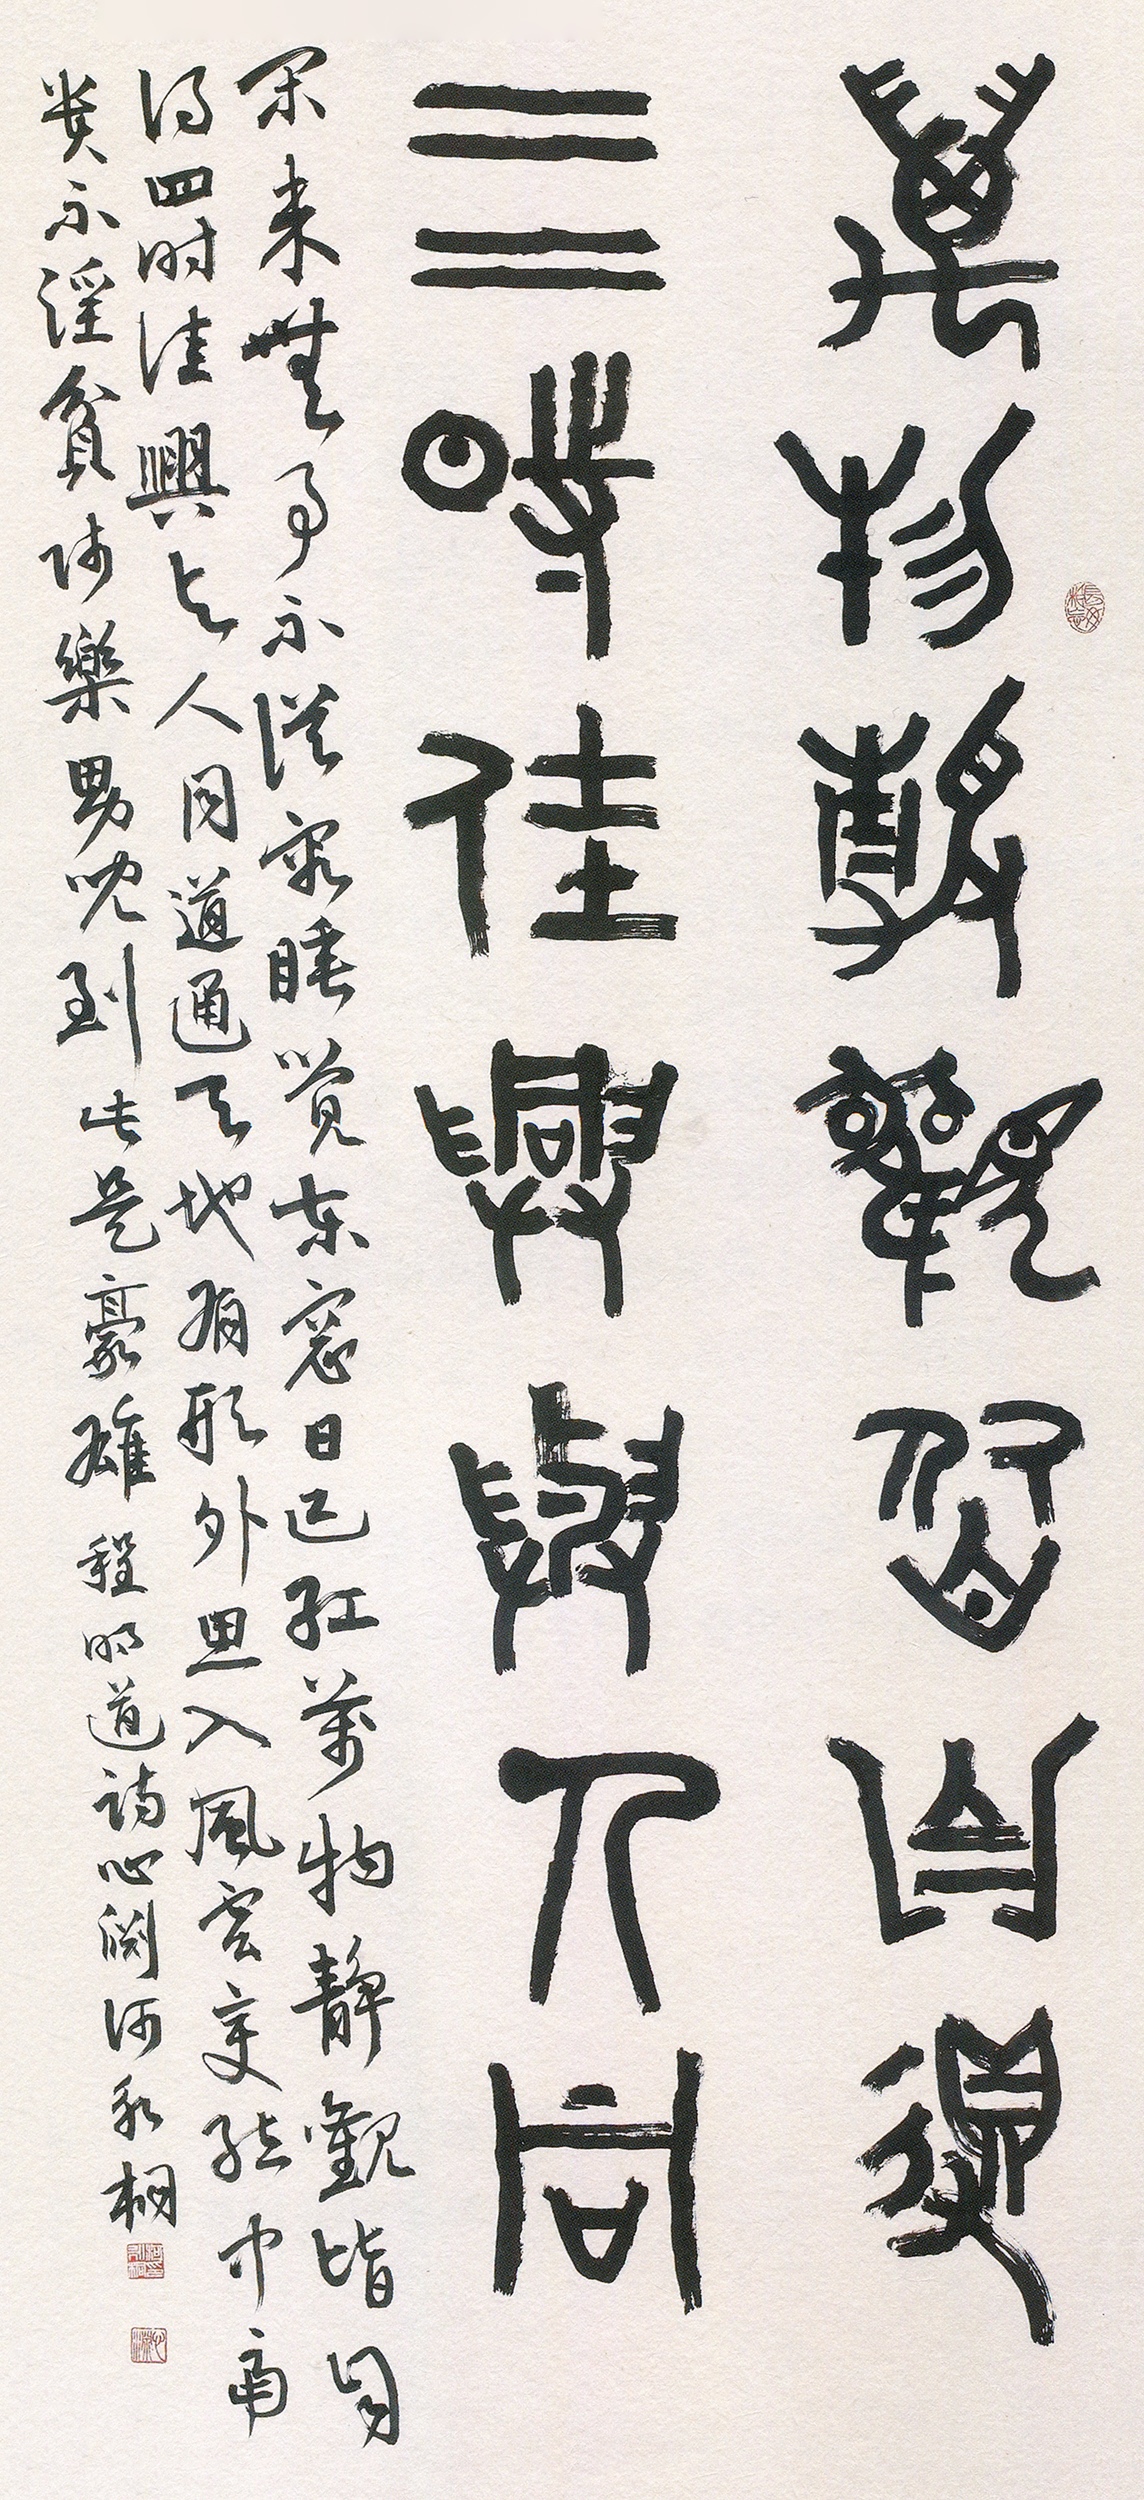 萬物靜觀皆自得
四時佳興與人同
閑来無事不從容睡覺東窓日已紅萬物靜觀皆自
得四时佳興与人同道通天地有形外思入風雲变態中富
贵不淫貧賤樂男児到此是豪雄程明道詩心渊河永